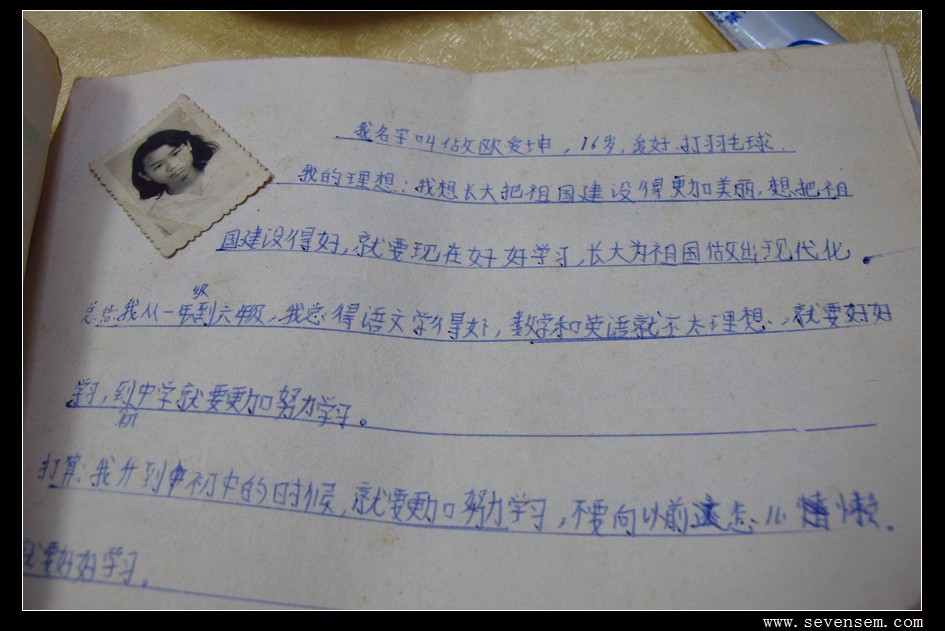 我名字叫做欧爱坤，16岁，爱好打羽毛球.
我的理想：我想长大把祖国建设得更加美丽，想把祖
国建设得好，就要现在好好学习，长大为祖国做出现代化。
总结：我从一年级到六年级，我总得语文学得好，数学和英语就不太理想，就要好好
学习，到中学就要更加努力学习。
打算：我升到初中的时候，就要更加努力学习，不要向以前
懒.
就要好好学习。
www.sevensem.com